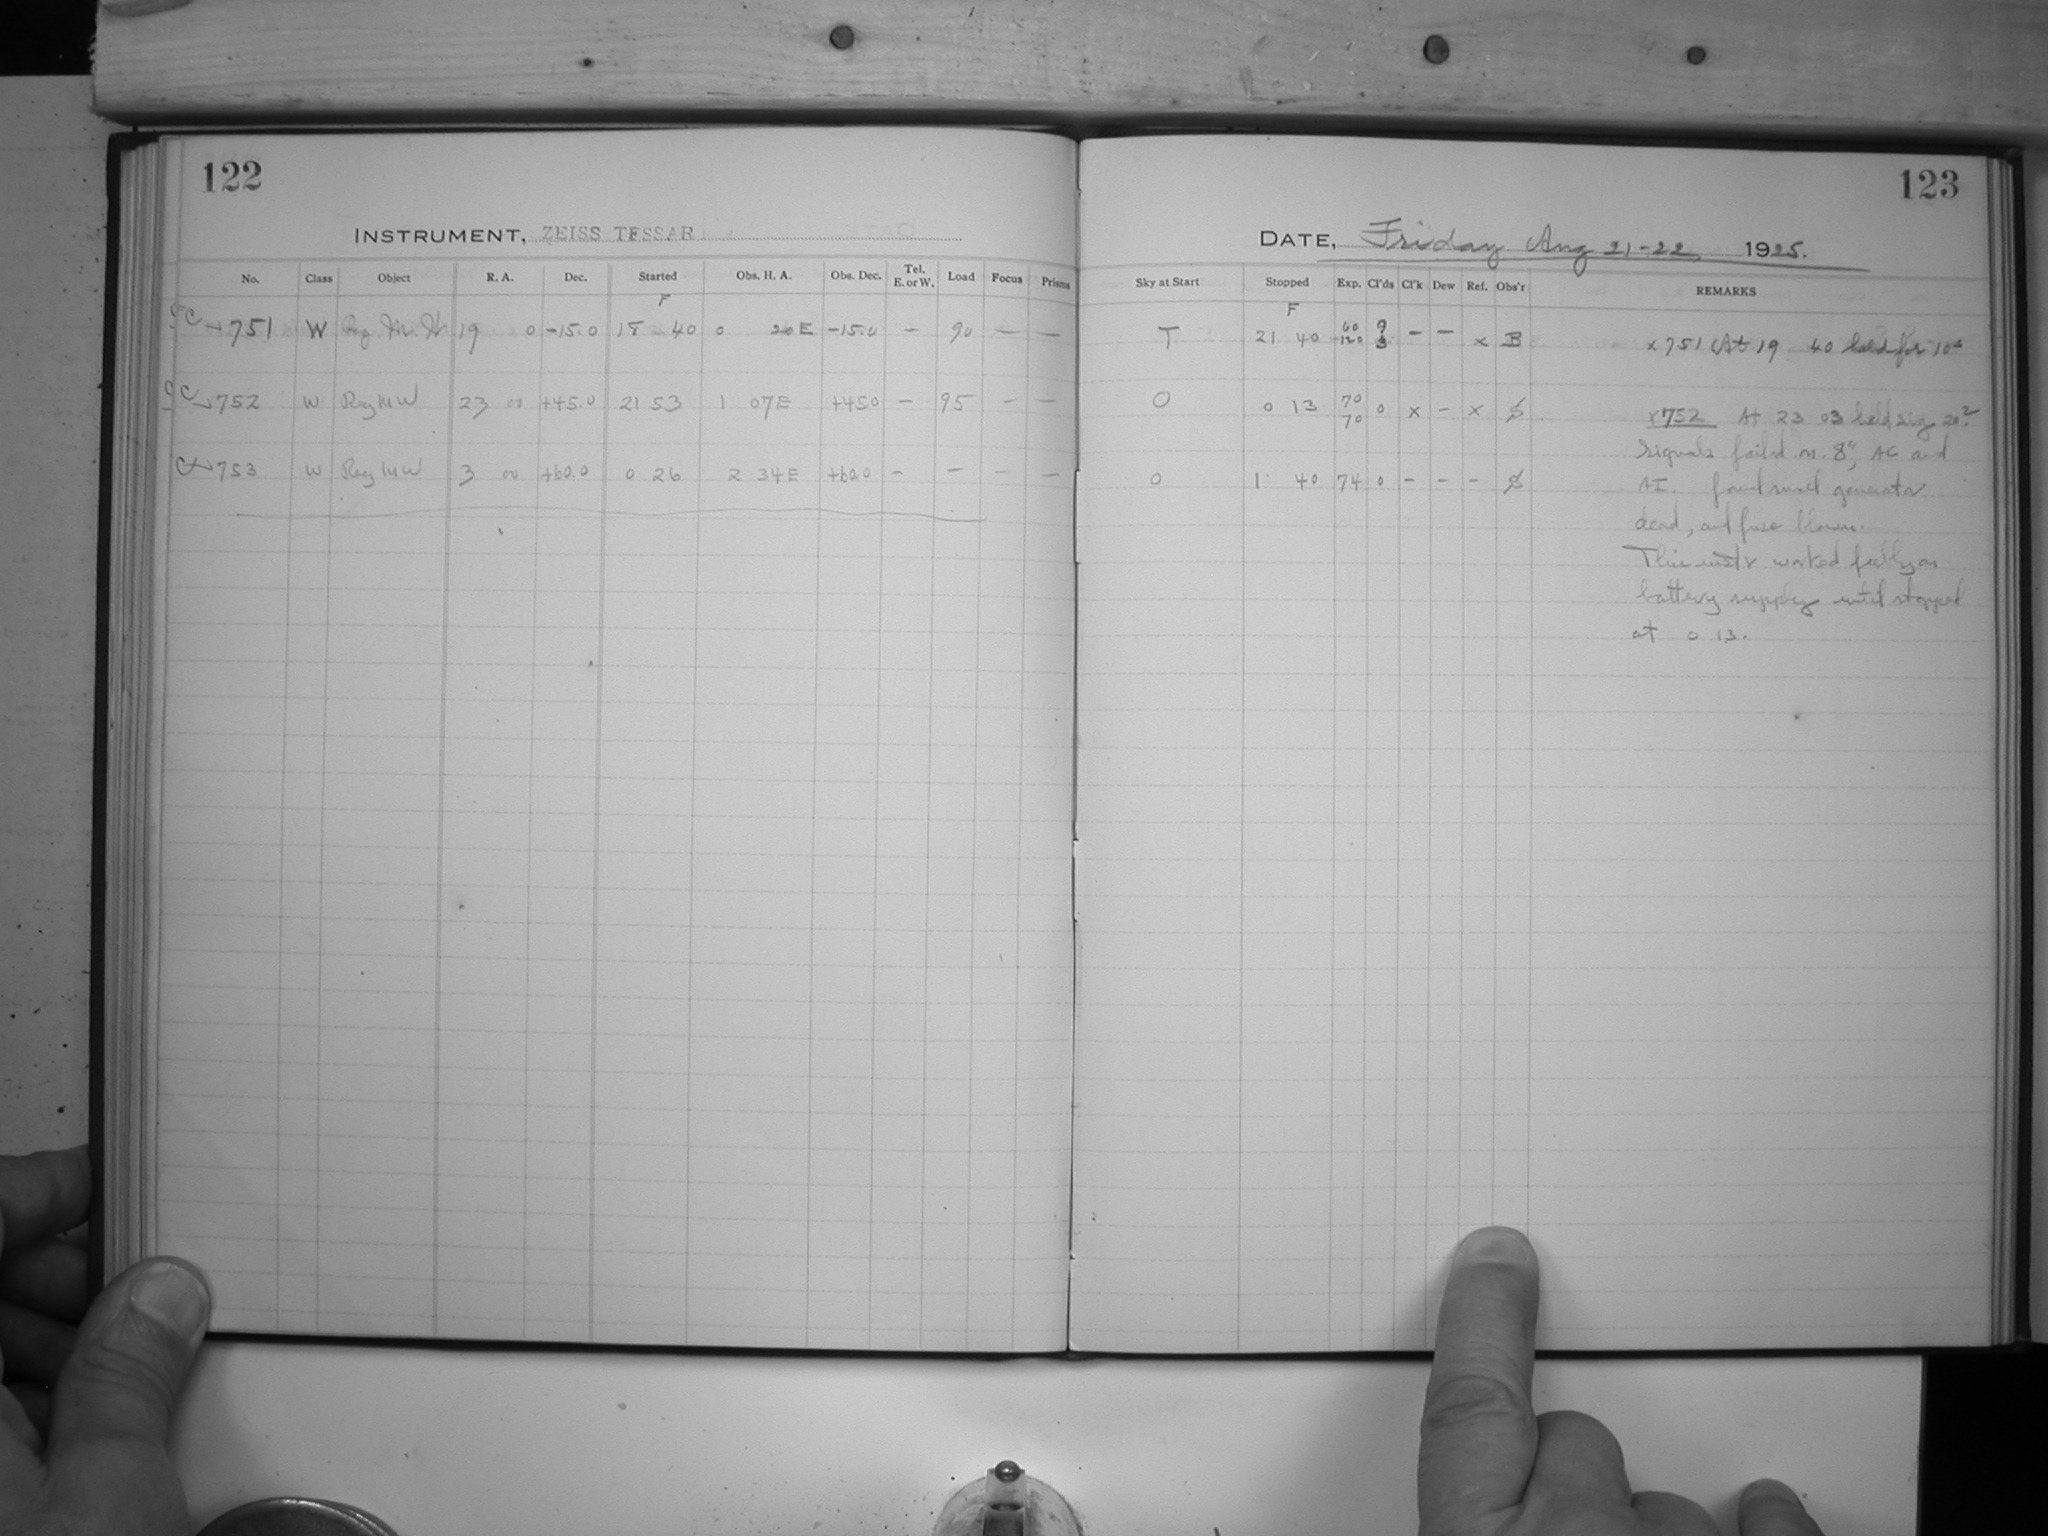 122
123
INSTRUMENT, ZEISS TESSAR
DATE, Friday Aug 21-22, 1925.
No. Class Object R. A. Dec. Started Obs. H. A. Obs. Dec. Tel. E. or W. Load Focus Prisms
Sky at Start Stopped Exp. Cl'ds Cl'k Dew Ref. Obs'r REMARKS
F
F
751 W Reg. M. W 19 0 -15.0 18 40 0 20 E -15.0 - 90 - -
T 21 40 60 120 9 - - x B x 751 At 19 40 held for 10
752 W Reg M W 23 00 +45.0 21 53 1 07 E +45.0 - 95 - -
O 0 13 70 70 0 x - x x752 At 23 03 held sig
Signals failed on 8", AC and
753 W Reg M W 3 00 +60.0 0 26 2 34 E +60.0 - - - -
O 1 40 74 0 - - - AI. found small generator
dead, and fuse blown.
This instr worked feebly on
battery supply until stopped
at 0 13.